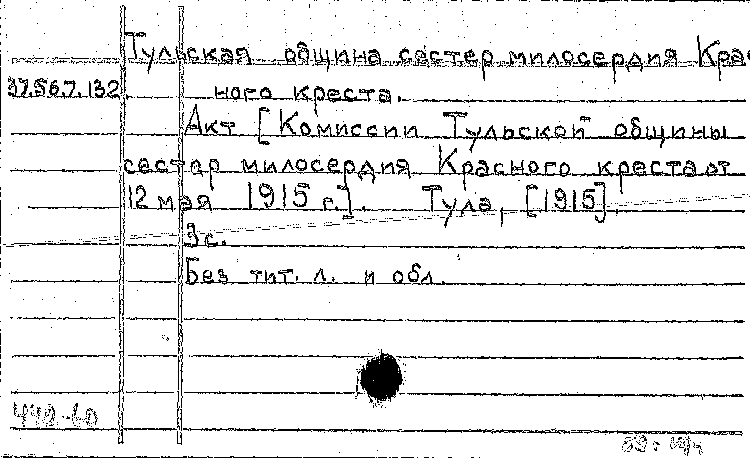 Тульская община сестер милосердия Крас
37.56.7.132 ного креста.
Акт [Комиссии Тульской общины
сестер милосердия Красного креста от
12 мая 1915 г.]. Тула, [1915].
3 с.
Без тит. л. и обл.